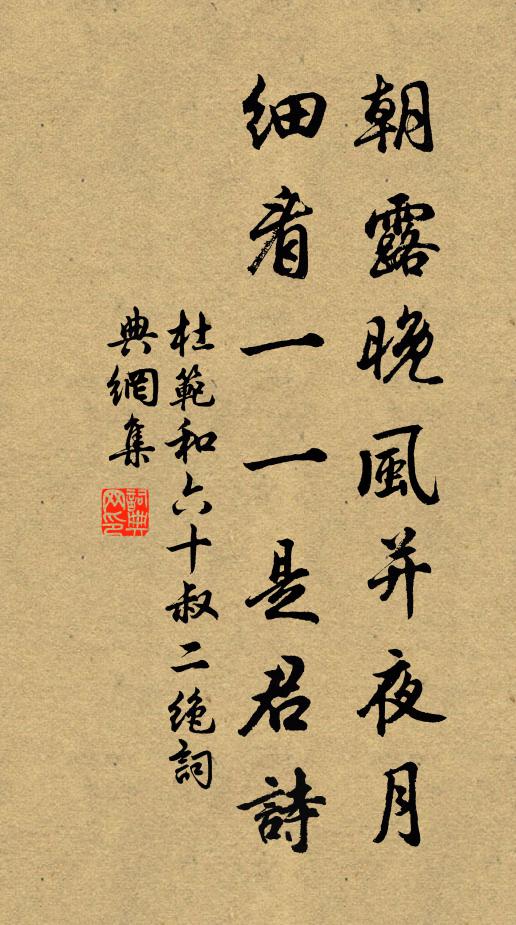 朝露晚風并夜月
細看一一是君詩
杜範和六十叔二絶詞
典網集
詞典
网印